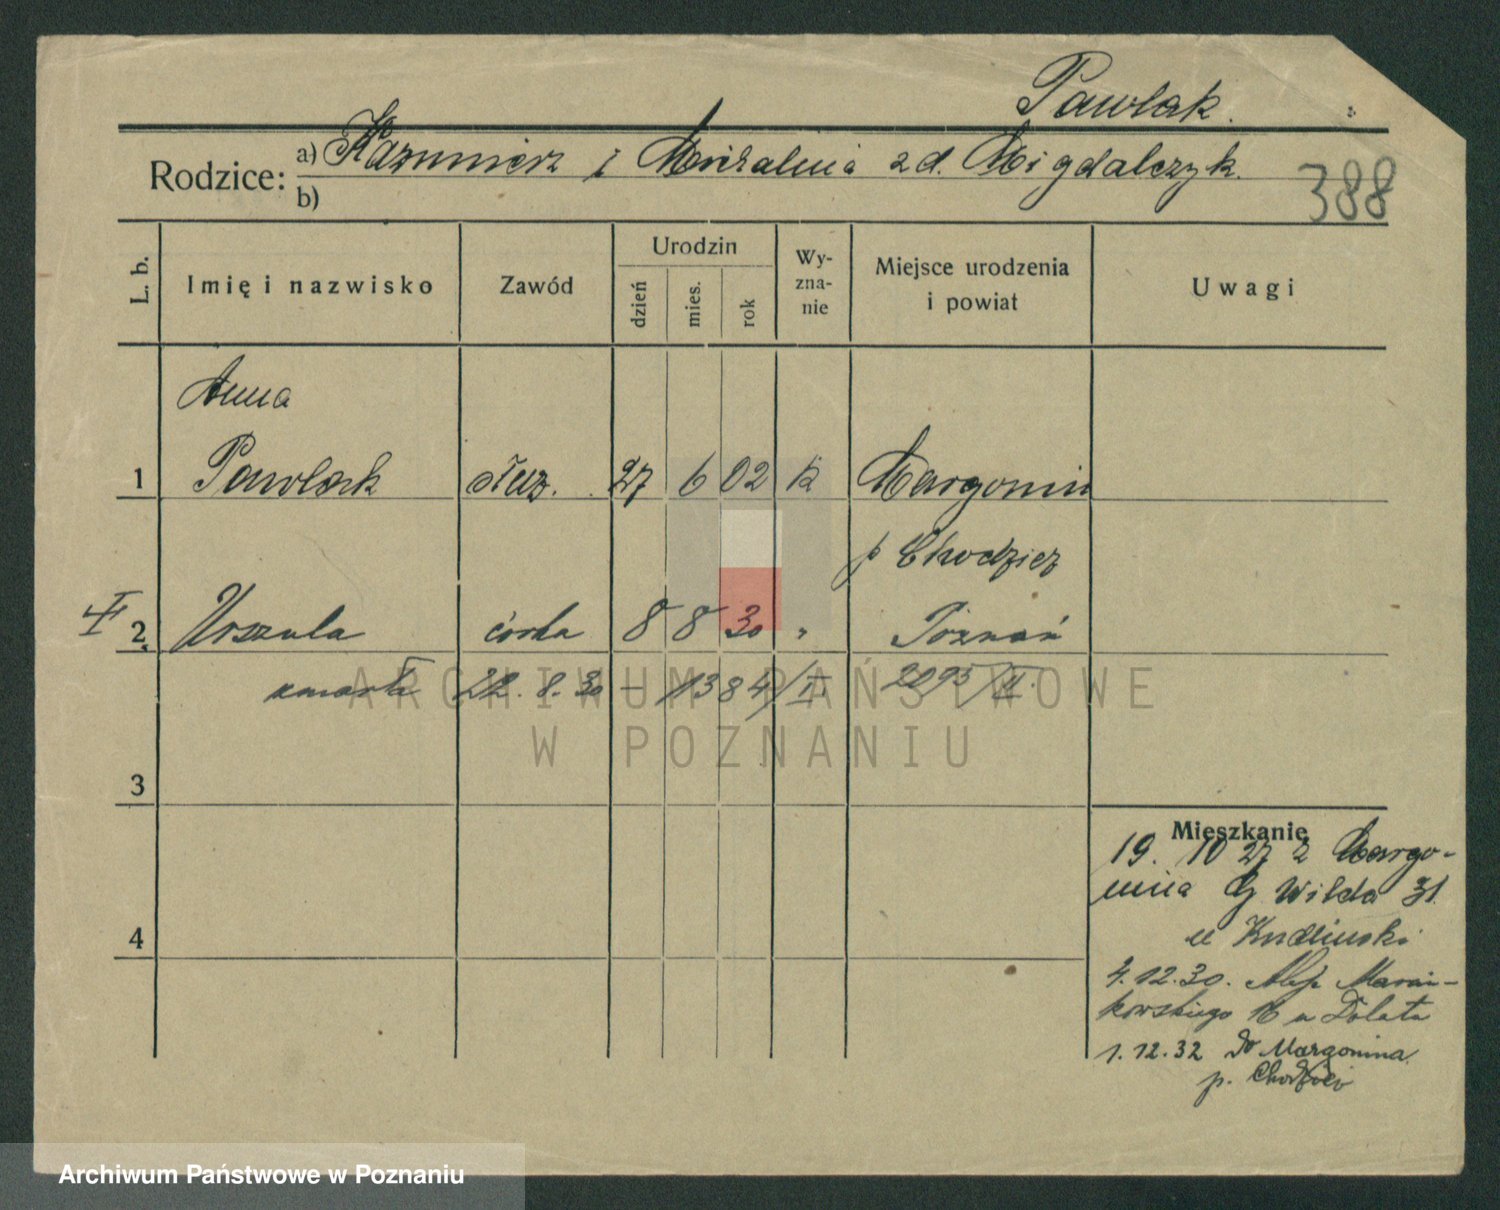 Pawlak.
Rodzice: a) Kazimierz i Michalina zd. Migdalczyk.
b)
388
L. b.
Imię i nazwisko
Zawód
Urodzin
dzień
mies.
rok
Wy-
zna-
nie
Miejsce urodzenia
i powiat
Uwagi
Anna
1 Pawlak służ. 27 6 02 k Margonin
p Chodzież
II 2 Urszula córka 8 8 30 " Poznań
zmarła 22. 8. 30 – 1384/II 2095/II.
3
4
Mieszkanie
19. 10 27 z Margo-
nina G Wilda 31
u
4.12.30. Alej. Marcin-
kowskiego 16 u Dolata
1.12.32 do Margonina
p. Chodzież
ARCHIWUM PAŃSTWOWE
W POZNANIU
Archiwum Państwowe w Poznaniu